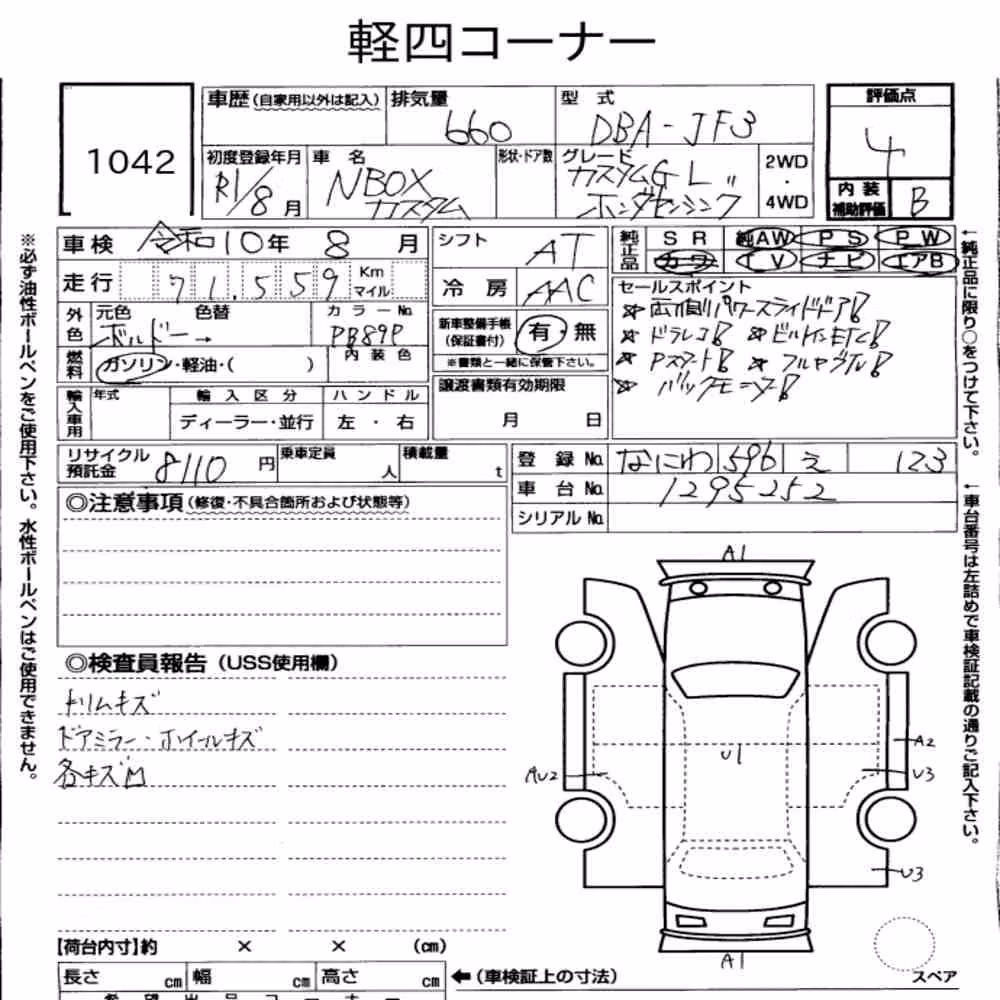 軽四コーナー
1042
車歴(自家用以外は記入) 排気量 660 型式 DBA-JF3
初度登録年月 R1/8月 車名 NBOX カスタム 形状・ドア数 グレード カスタムG L" ホンダセンシング 2WD・4WD
評価点 4
内装補助評価 B
車検 令和10年8月
走行 71,559 Km マイル
外色 元色 ボルドー → 色替 カラーNo. PB89P
燃料 ガソリン・軽油・( ) 内装色
輸入車用 年式 輸入区分 ディーラー・並行 ハンドル 左・右
シフト AT
冷房 AAC
新車整備手帳(保証書付) 有・無
※書類と一緒に保管下さい。
譲渡書類有効期限
月 日
純正品 SR 純AW PS PW
カワ TV ナビ エアB
セールスポイント
☆両側パワースライドドア!
☆ドラレコ! ☆ビルトインETC!
☆Pスタート! ☆フルセグTV!
☆バックモニター!
リサイクル預託金 8110円 乗車定員 人 積載量 t
登録No. なにわ 596 え 123
車台No. 1295252
シリアルNo.
◎注意事項(修復・不具合箇所および状態等)
◎検査員報告(USS使用欄)
トリムキズ
ドアミラー・ホイールキズ
各キズ凹
A1
U1
A2
U3
AU2
U3
A1
スペア
【荷台内寸】約 × × (cm)
長さ cm 幅 cm 高さ cm ←(車検証上の寸法)
※必ず油性ボールペンをご使用下さい。水性ボールペンはご使用できません。
←純正品に限り○をつけて下さい。
←車台番号は左詰めで車検証記載の通りご記入下さい。